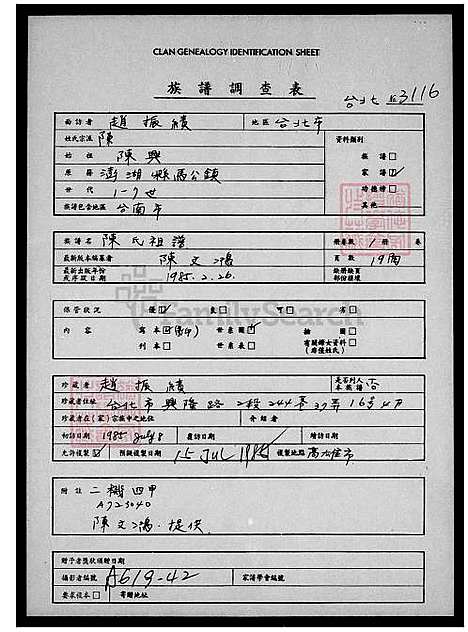 CLAN GENEALOGY IDENTIFICATION SHEET
族譜調查表
台北 3116
面訪者 趙振績 地區 台北市
姓氏宗派 陳
始祖 陳興
原籍 澎湖縣馬公鎮
世代 1-7世
族譜包含地區 台南市
資料類別
族譜□
家譜☑
功德榜□
其他
族譜名 陳氏祖譜 冊卷數 1冊 卷
最新版本編纂者 陳文鴻 頁數 19面
最新出版年份或序跋日期 1985.2.26. 缺冊缺頁部份種類
保管狀況 優☑ 良□ 可□ 劣□
內容 寫本☑(影印) 世系圖☑ 繪圖□
刊本□ 世系表□ 有關婦女資料(非僅姓氏)□
珍藏者 趙振績 是否列入本族譜 否
珍藏者住址 台北市興隆路2段244巷37弄16號4F
珍藏者在(家)宗族中之地位 介紹者
初訪日期 1985 July 8 復訪日期 續訪日期
允許複製☑ 預擬複製日期 15 JUL 1985 複製地點 高雄市
附註 二機四甲
A723040
陳文鴻提供
贈予者獎狀頒贈日期
攝影者編號 A619-42 家譜學會編號
要求復本□ 寄贈地址
FamilySearch